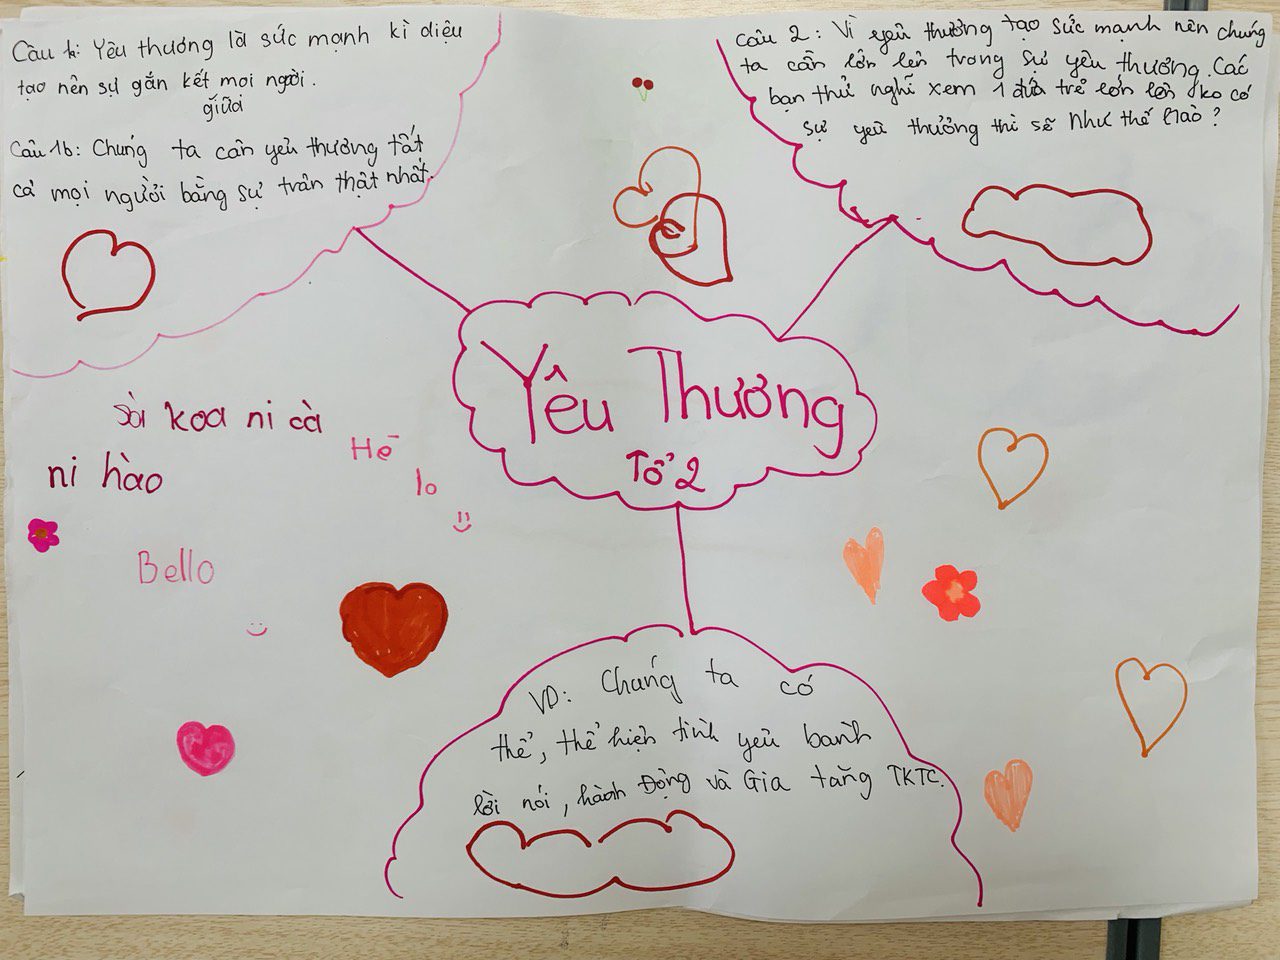 Câu 1a: Yêu thương là sức mạnh kì diệu
tạo nên sự gắn kết mọi người.
giữa
Câu 1b: Chúng ta cần yêu thương tất
cả mọi người bằng sự trân thật nhất.
Câu 2: Vì yêu thương tạo sức mạnh nên chúng
ta cần lớn lên trong sự yêu thương. Các
bạn thử nghĩ xem 1 đứa trẻ lớn lên ko có
sự yêu thương thì sẽ như thế nào?
Yêu Thương
Tổ 2
sòi koa ni cà
ni hào
Hế
lo
Bello
VD: Chúng ta có
thể, thể hiện tình yêu bành
lời nói, hành Động và Gia tăng TKTC.